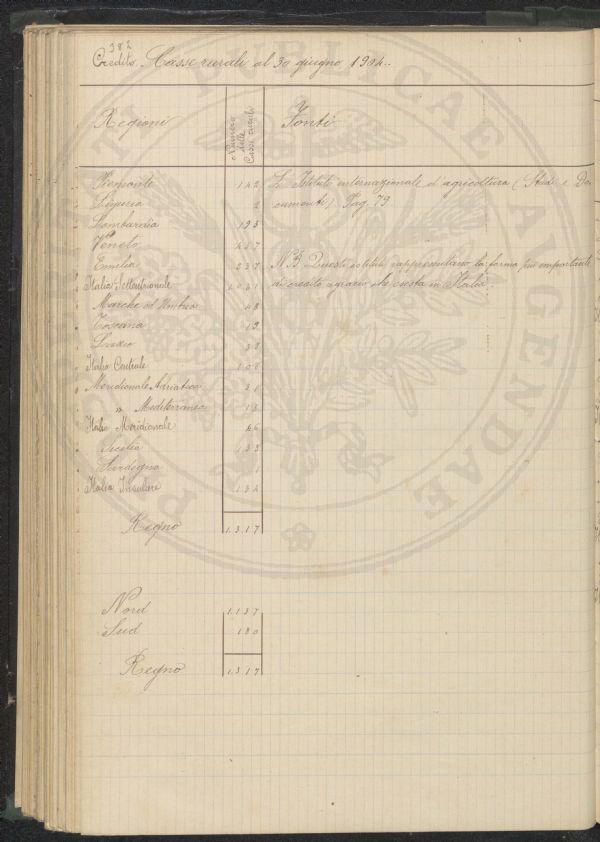 382
Credito. Casse rurali al 30 giugno 1904.
Regioni
Numero
delle
Casse rurali
Fonti
Piemonte 142
Liguria 2
Lombardia 193
Veneto 457
Emilia 237
Italia Settentrionale 1.031
Marche ed Umbria 48
Toscana 19
Lazio 39
Italia Centrale 106
Meridionale Adriatico 31
" Mediterraneo 15
Italia Meridionale 46
Sicilia 133
Sardegna 1
Italia Insulare 134
Regno 1.317
L'Istituto internazionale d'agricoltura (Studi e Do
cumenti) Pag. 79
N.B. Questi istituti rappresentano la forma più importante
di credito agrario che esista in Italia.
Nord 1.137
Sud 180
Regno 1.317
PUBLICAE
AGENDAE